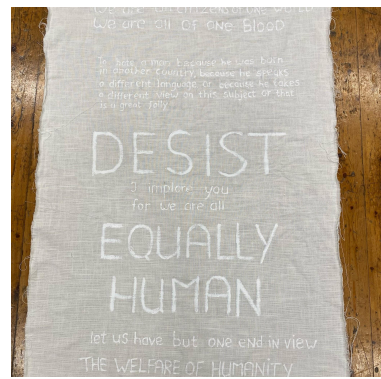 we are all of one Blood
To hate a man because he was born
in another country, because he speaks
a different language or because he takes
a different view on this subject or that
is a great folly
DESIST
I implore you
for we are all
EQUALLY
HUMAN
let us have but one end in view
THE WELFARE OF HUMANITY